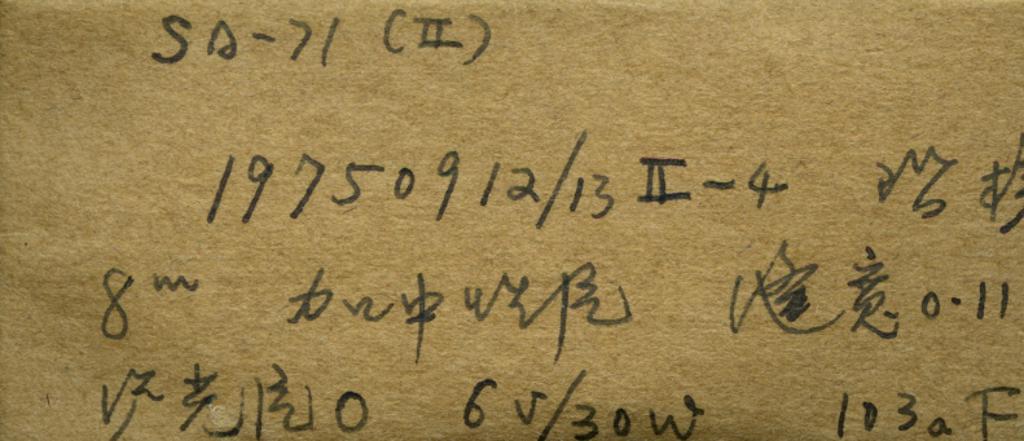 SA-71 (II)
19750912/13 II-4
8m 加中性片 缝宽0.11
沪光片0 6V/30W 103aF